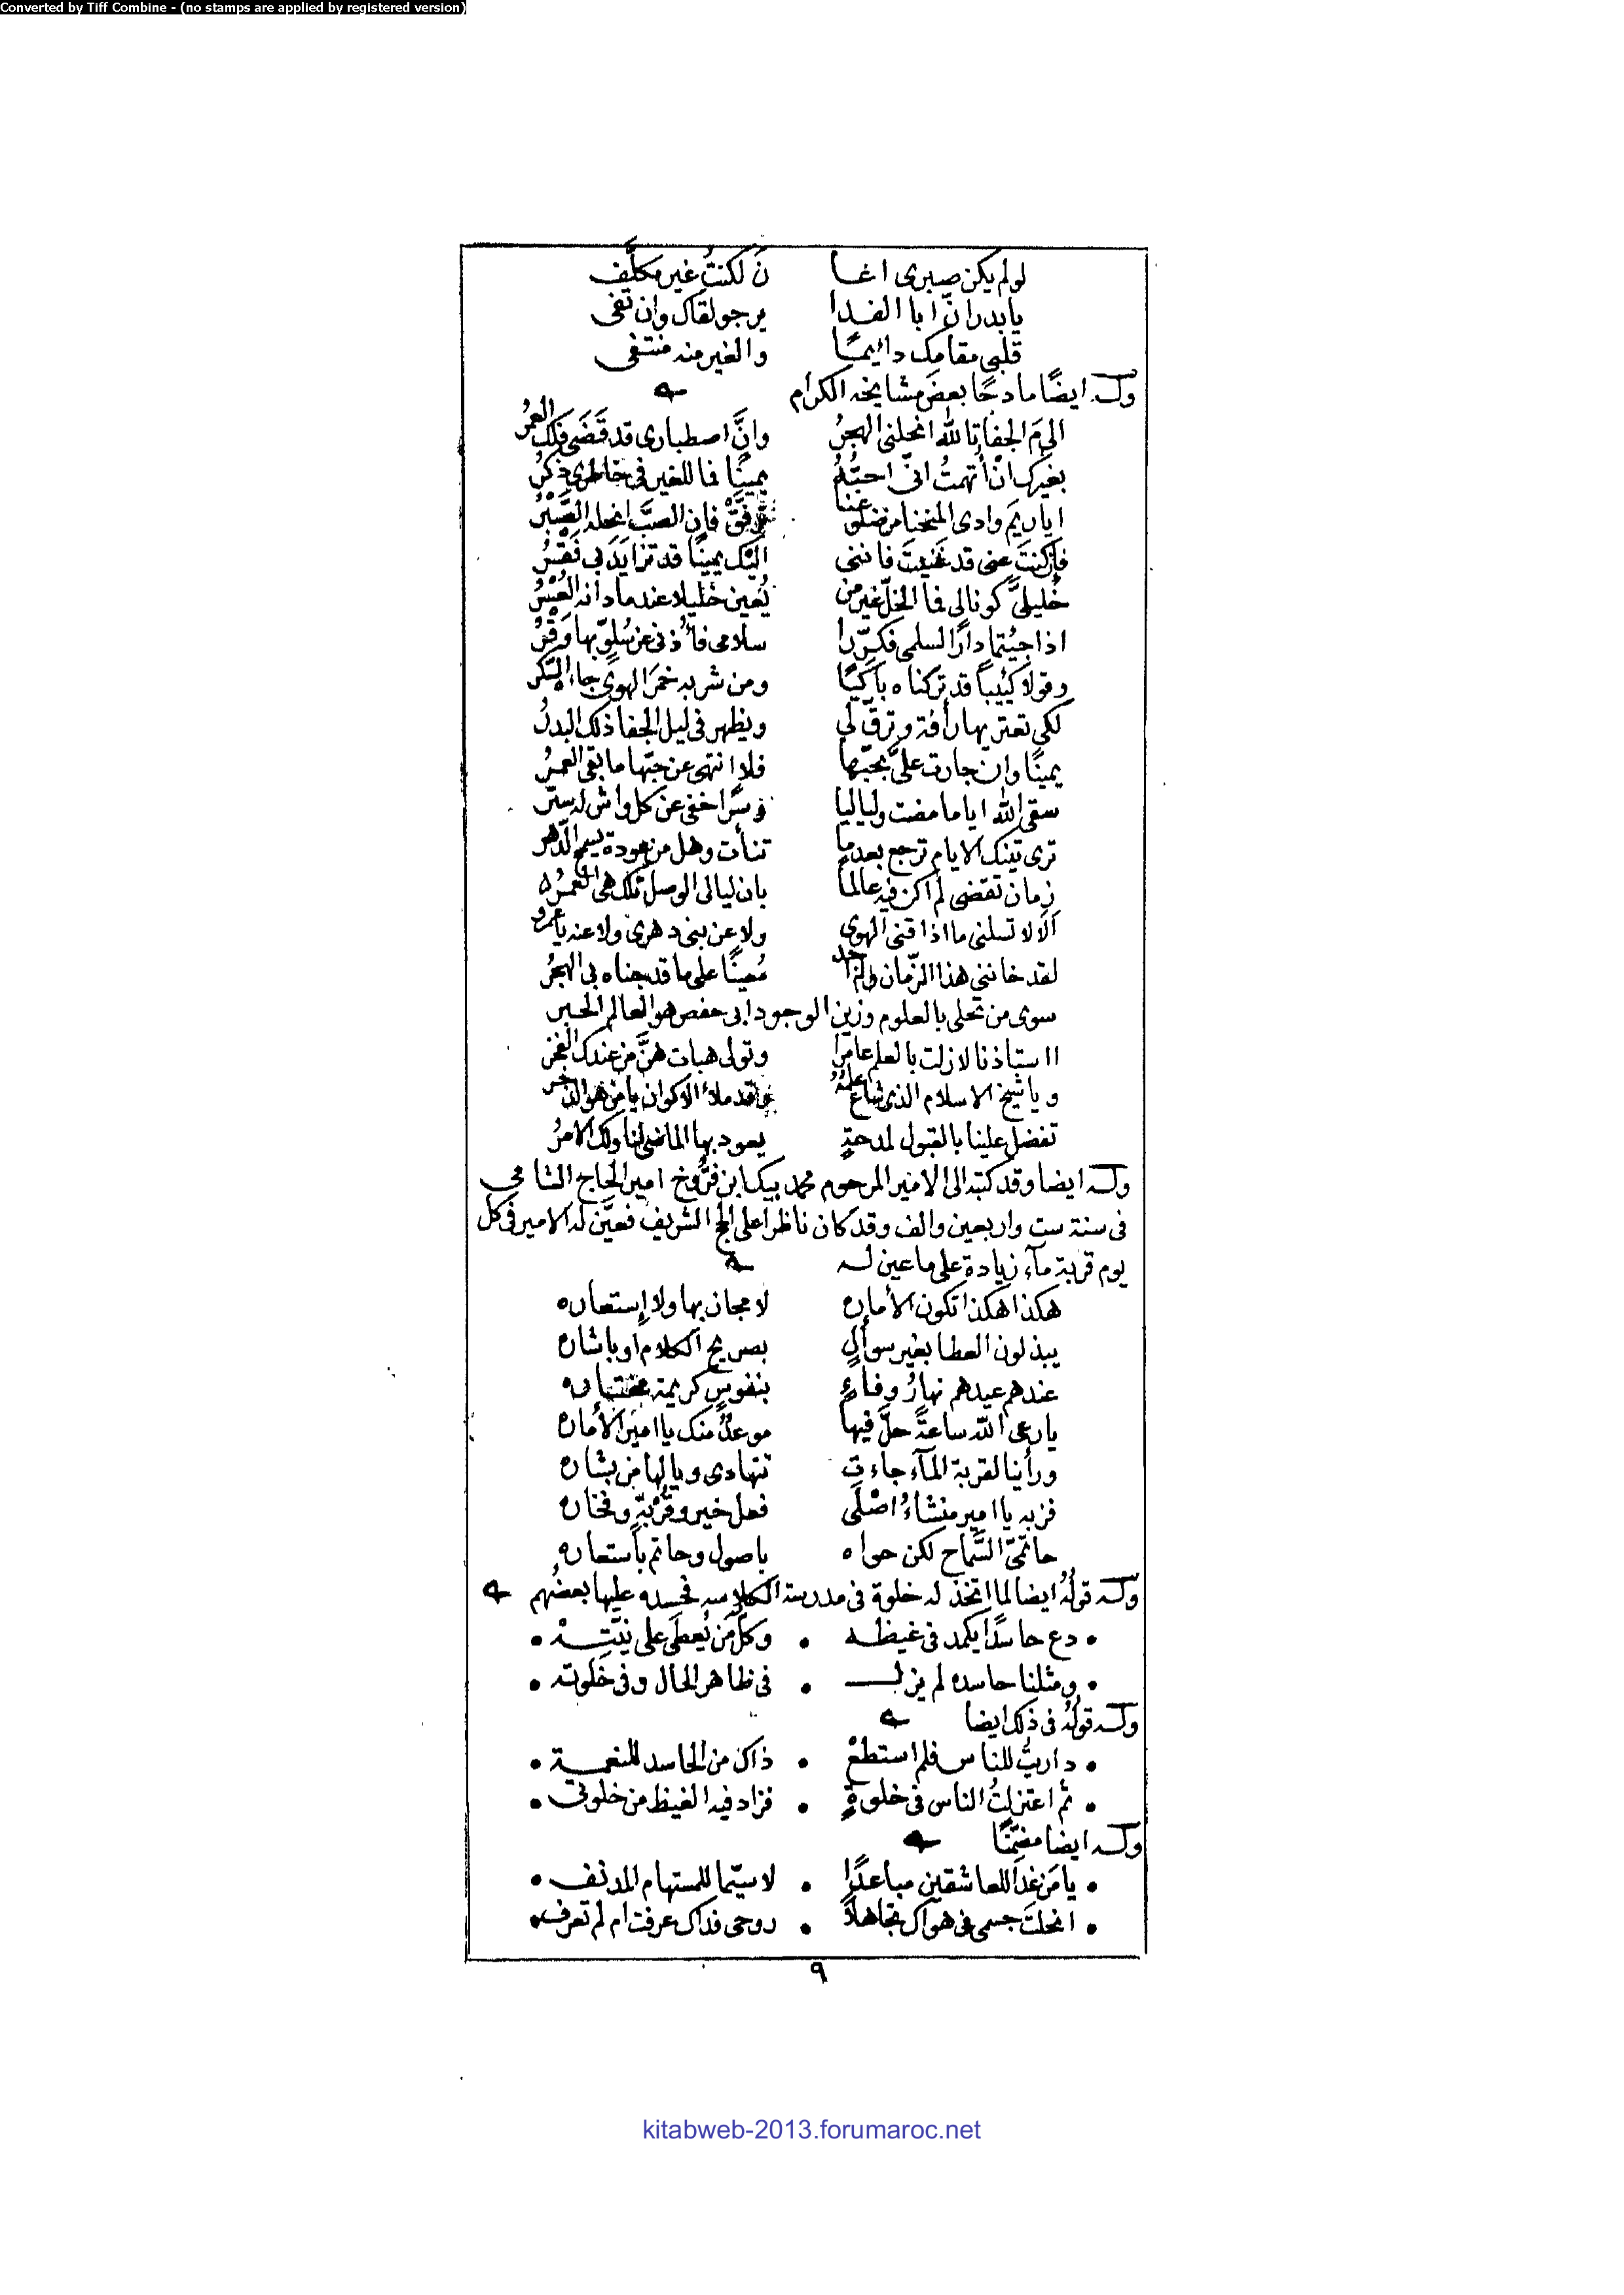 Converted by Tiff Combine - (no stamps are applied by registered version)
لو لم يكن صبرى اعـا نَ لكنتُ غير مكلَّف
يا بدر انّ ابا الفـدا يرجو لقاك وان تفى
قلبى مقامك دائيمًـا والغير منه منتفى
ولـه ايضًا مادحًا بعض مشايخه الكرام
الىمَ الجفا تالله انحلنى الهجرُ وانَّ اصطبارى قد قَضَى فلك العمرُ
بغيرك ان أتهمتُ انّى احبّهُ يمينًا فما للغير فى خاطرى ذكرُ
ايا ريم وادى المنحنا من ضلوعنا ترفَّقْ فإن الصبَّ انحله الصَّبْرُ
فإن كنتَ عنى قد غنيتَ فاننى اليْك يمينًا قد تزايَدَ بى فَقْرُ
خليلىَّ كونا لى فما الخلّ غير من يُعين خليلا عندما دانه العُسْرُ
اذا جئيتما دارًا لسلمى فكرّرا سلامى فأذنى عن سُلوّ بها وَقْرُ
وقولا كئيباً قد تركناه باكيًا ومن شربه خمرَ الهوى جاء السّكر
لكى تعتريها رأفة وترقّ لى ويظهر فى ليل الجفا ذلك البدرُ
يمينًا وان جارت علىَّ بحبّها فلا انتهى عن حبّها ما بقى العمرُ
سقى الله اياما مضت ولياليا وسرًّا خفى عن كل واش له سترُ
ترى تيك الايام ترجع بعد ما تنأت وهل من عودة يسمح الدّهر
زمان تقضى لم اكن فيه عالما بان ليالى الوصل تلك هى العمرُ
ألا لا تسلنى ما اذا قنى الهوى ولا عن بنى دهرى ولا عنه يا عمرو
لقد خاننى هذا الزّمان ولم اجد مُعينًا على ما قد جناه بى الهجرُ
سوى من تحلى بالعلوم وزين الوجود ابى حفص هو العالم الحبر
ااستاذنا لا زلت بالعلم عامرًا وتولى هبات هنَّ من عندك الفخر
ويا شيخ الاسلام الذى شاع علمهُ وقد ملأ الاكوان يا من هو البحر
تفضل علينا بالقبول لمدحةٍ يعود بها الماضى لنا ولك الامرُ
ولـه ايضا وقد كتبه الى الامير المرحوم محمد بيك ابن فرُّوخ امير الحاج الشامى
فى سنة ست واربعين والف وقد كان ناظرا على الحج الشريف فعيَّن له الامير فى كل
يوم قربة مآء زيادة على ما عين لـه
هكذا هكذا تكون الأماره لا مجاز بها ولا إستعاره
يبذلون العطا بغير سوألٍ بصريح الكلام او باشاره
عندهم عيدهم نهارُ وفاءٍ بنفوسٍ كريمة مختـاره
يا رعى اللّه ساعةً حلَّ فيها موعدٌ منك يا امير الأماره
ورأينا لقربة المآء جاءت تتهادى ويا لها من بشاره
فزبه يا امير منشاءُ اصْلى فعل خير وقُرْبةٍ وفخاره
حاتمىّ السَّماح لكن حواه باصول وحاتم بأستعارهِ
ولـه قولهُ ايضا لما اتخذ له خلوة فى مدرسة الكلاسه فحسده عليها بعضهم
• دع حاسدًا يكمد فى غيظـه • وكل من يُعطى على نيَّتِـهْ •
• ومثلنا حاسده لم يزلـ • فى ظاهر الحال وفى خلوته •
ولـه قولهُ فى ذلك ايضا
• داريتُ للناس فلم استطعْ • ذاك من الحاسد للنعمـة •
• ثم اعتزلتُ الناس فى خلوةٍ • فزاد فيه الغيظ من خلوتى •
ولـه ايضا مضمّنًا
• يا مَن غدَا للعاشقين مباعدًا • لا سيّما للمستهام المدنف •
• انحلتَ جسمى فى هواك تجاهلًا • روحى فداك عرفت ام لم تعرف •
٩
kitabweb-2013.forumaroc.net